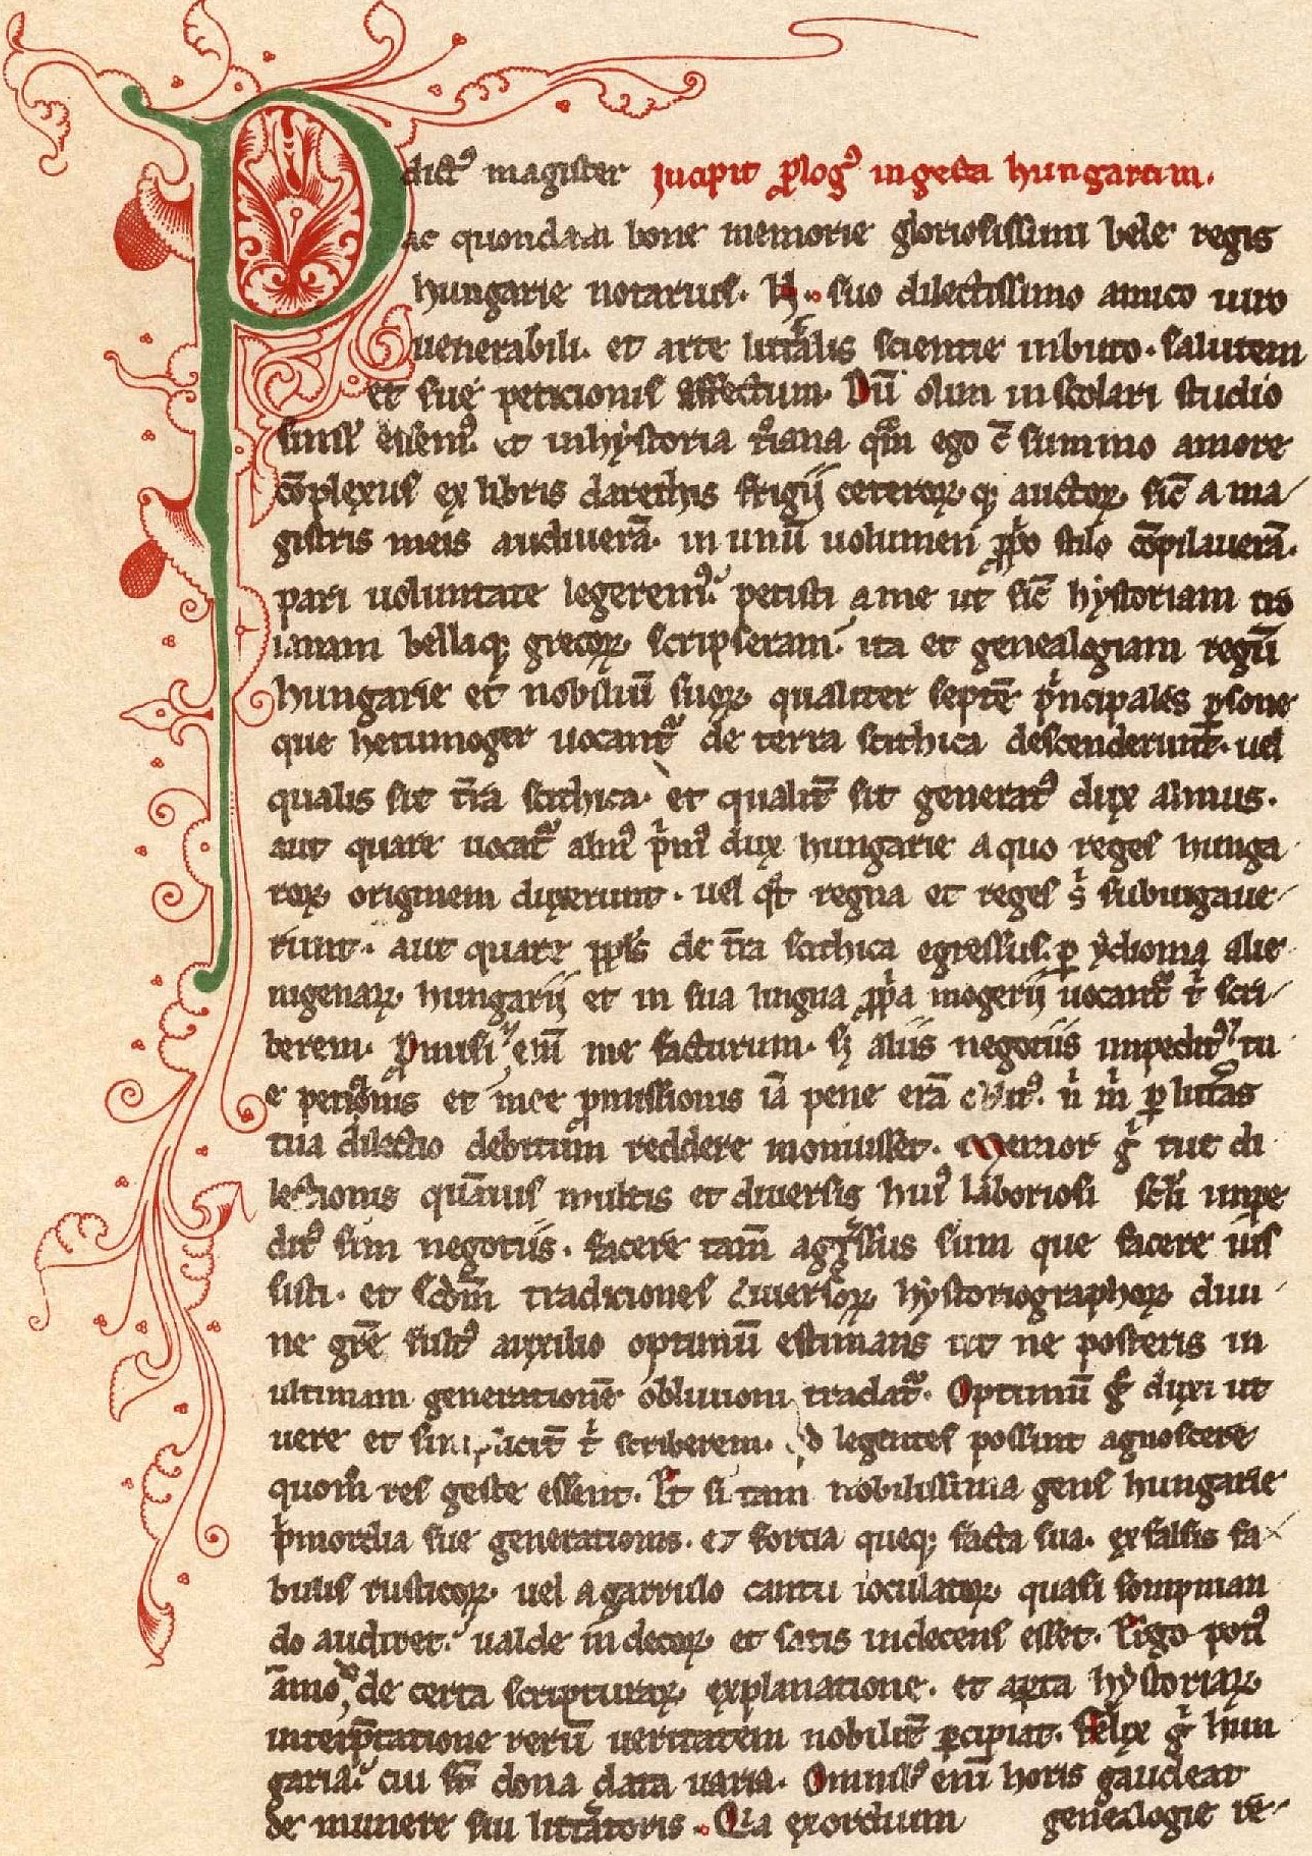 P dictꝰ magister Incipit ꝓlogꝰ in gesta hungarum.
ac quondam bone memorie gloriosissimi bele regis
hungarie notarius. N. suo dilectissimo amico uiro
uenerabili. et arte litt̃alis scientie inbuto. salutem
et sue peticionis effectum. Dũ olim in scolari studio
simul essemꝰ. et in hystoria t̃iana qm̃ ego c̃ summo amore
cõplexus ex libris darethis frigii ceteroꝝ q; auctoꝝ sic̃ a ma
gistris meis audiuerã. in unũ uolumen ꝓpo stilo cõpilauerã.
pari uoluntate legeremꝰ. petisti a me ut sic̃ hystoriam tro
ianam bellaq; grecoꝝ scripseram. ita et genealogiam regũ
hungarie et nobiliũ suoꝝ qualiter septẽ pͥncipales ꝑsone
que hetumoger uocant̃ de terra scithica descenderunt. uel
qualis sit t̃ra scithica. et qualit̃ sit generatꝰ dux almus.
aut quare uocat̃ almꝰ pͥmꝰ dux hungarie a quo reges hunga
roꝝ originem duxerunt. uel qͦt regna et reges sͥ subiugaue
runt. aut quare ppl̃s de t̃ra scithica egressus. ꝑ ydioma alie
nigenaꝝ hungarii et in sua lingua ꝓpͥa mogerii uocant̃ tͥ scri
berem. ꝓmisi eñi me facturum. sꝫ aliis negotiis impeditꝰ tu
e petic̃onis et mee ꝓmissionis iã pene erã oblitꝰ. nͥ mͥ ꝑ litt̃as
tua dilectio debitum reddere monuisset. Memor gͥ tue di
lectionis quãuis multis et diuersis huiꝰ laboriosi sc̃li impe
ditꝰ sim negotiis. facere tam̃ aggressus sum que facere ius
sisti. et scdm̃ tradiciones diuersoꝝ hystoriographoꝝ diui
ne gr̃e fultꝰ auxilio optimũ estimans ut ne posteris in
ultimam generationẽ obliuioni tradat̃. Optimũ gͦ duxi ut
uere et simplicit̃ tͥ scriberem. qd̃ legentes possint agnoscere
quom̃ res geste essent. Et si tam nobilissima gens hungarie
pͥmordia sue generationis. et fortia queq; facta sua. ex falsis fa
bulis rusticoꝝ uel a garrulo cantu ioculatoꝝ quasi sompnian
do audiret. ualde indecoꝝ et satis indecens esset. Ergo potiꝰ
ãmodo de certa scripturaꝝ explanatione. et aperta hystoriaꝝ
interp̃tatione rerũ ueritatem nobilit̃ ꝑcipiat. Felix gͥ hun
garia. cui st̃ dona data uaria. Omnibꝰ eñi horis gaudeat
de munere sui litt̃atoris. Quia exordium genealogie re